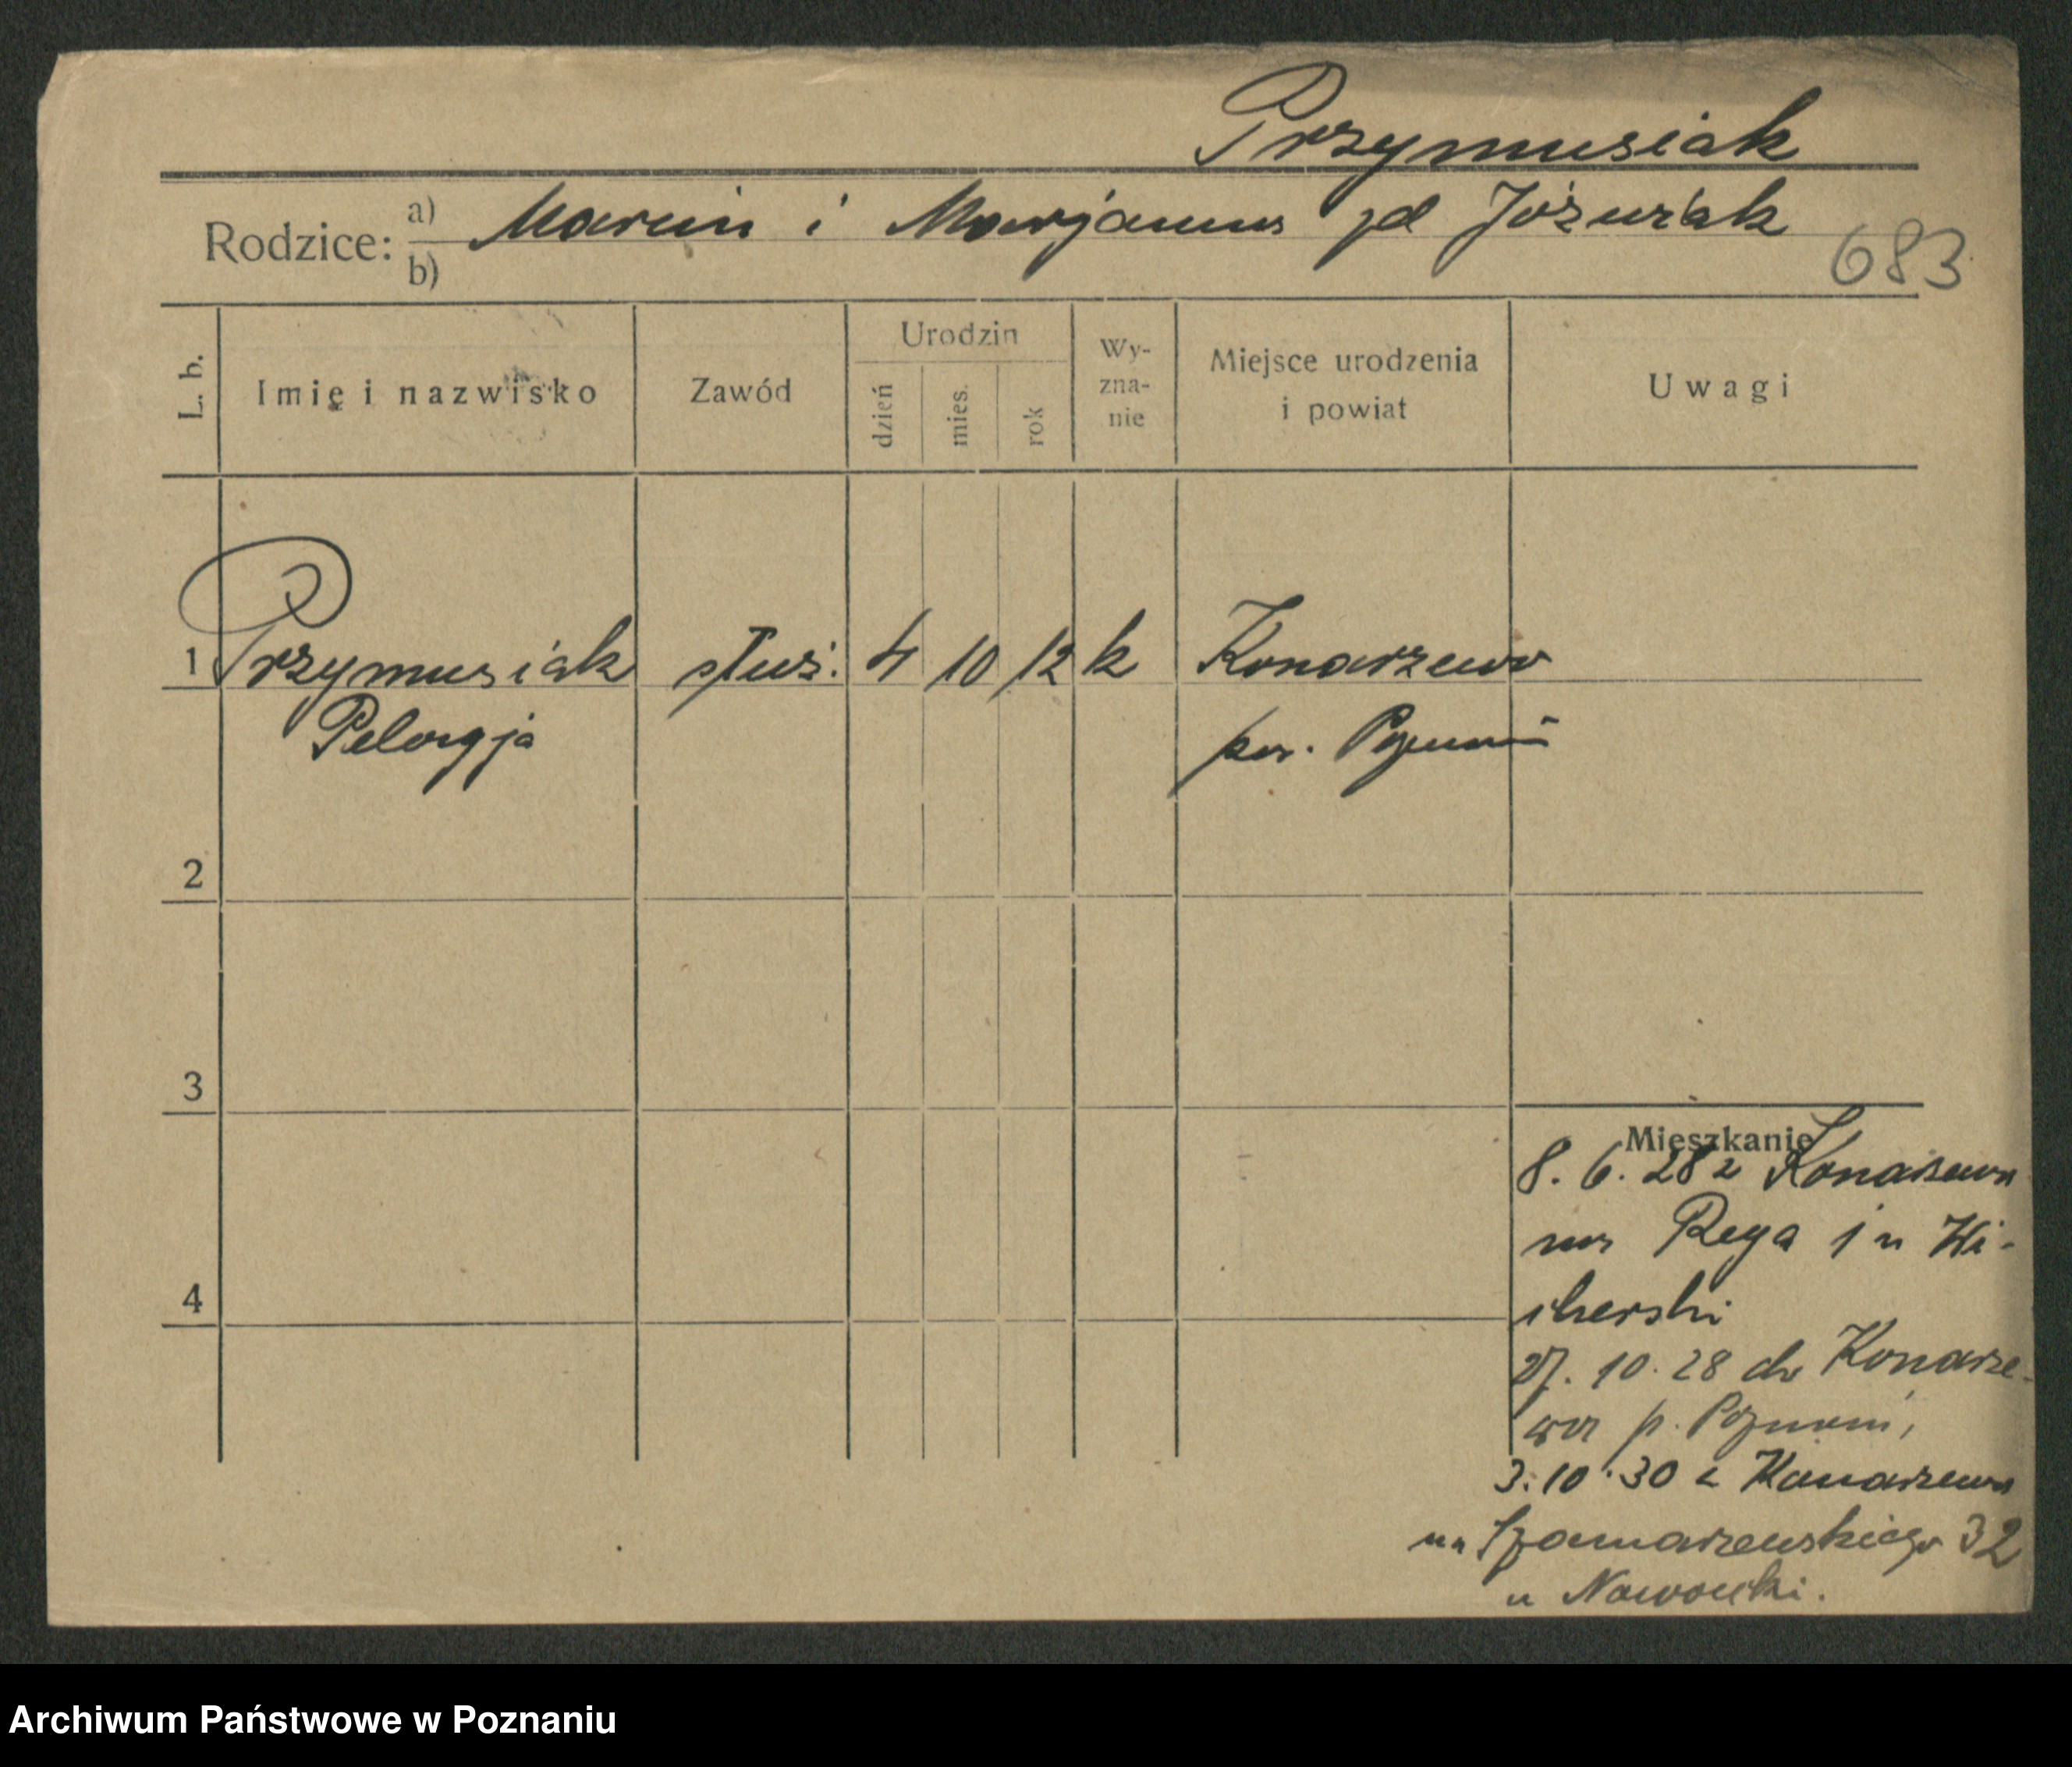 Przymusiak
Rodzice: a) Marcin i Marjanna zd Jóźwiak
b)
683
L. b.
Imię i nazwisko
Zawód
Urodzin
dzień
mies.
rok
Wy-
zna-
nie
Miejsce urodzenia
i powiat
Uwagi
1 Przymusiak służ. 4 10 12 k Konarzewo
Pelagja pow. Poznań
2
3
4
Mieszkanie
8. 6. 28 z Konarzewa
na Reya 1 u Wi-
cherski
27. 10. 28 do Konarze-
wa p. Poznań,
3. 10. 30 z Konarzewa
na Szamarzewskiego 32
u Nawrocki.
Archiwum Państwowe w Poznaniu